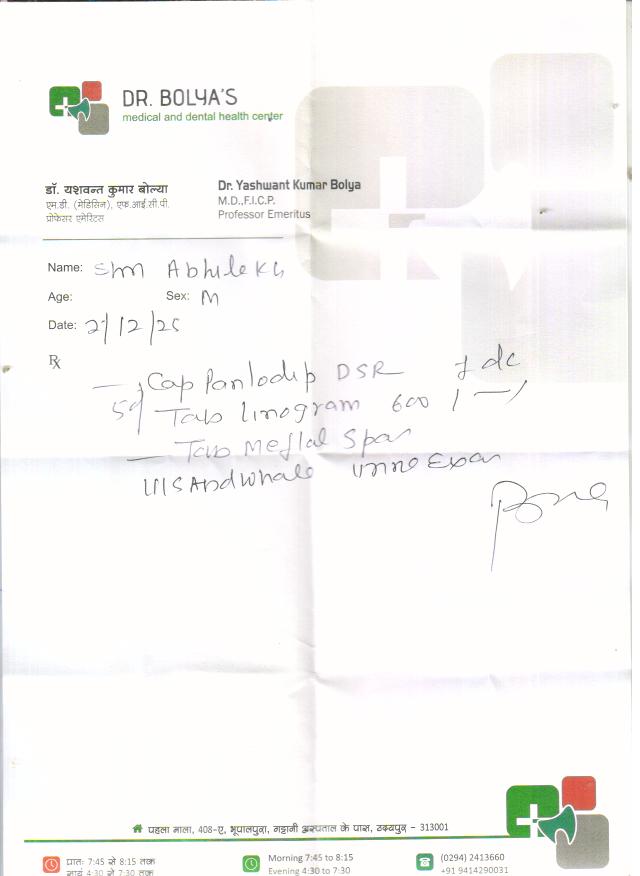 DR. BOLYA'S
medical and dental health center
डॉ. यशवन्त कुमार बोल्या
एम.डी. (मेडिसिन), एफ.आई.सी.पी.
प्रोफेसर एमेरिटस
Dr. Yashwant Kumar Bolya
M.D.,F.I.C.P.
Professor Emeritus
Name: Shri Abhilekh
Age: Sex: M
Date: 2/12/25
℞
Cap Pantodip DSR
Tab Linogram 600
Tab Meftal Spas
U/S Abd Whole Urine Exam
पहला माला, 408-ए, भूपालपुरा, गट्टानी अस्पताल के पास, उदयपुर - 313001
प्रातः 7:45 से 8:15 तक
सायं 4:30 से 7:30 तक
Morning 7:45 to 8:15
Evening 4:30 to 7:30
(0294) 2413660
+91 9414290031